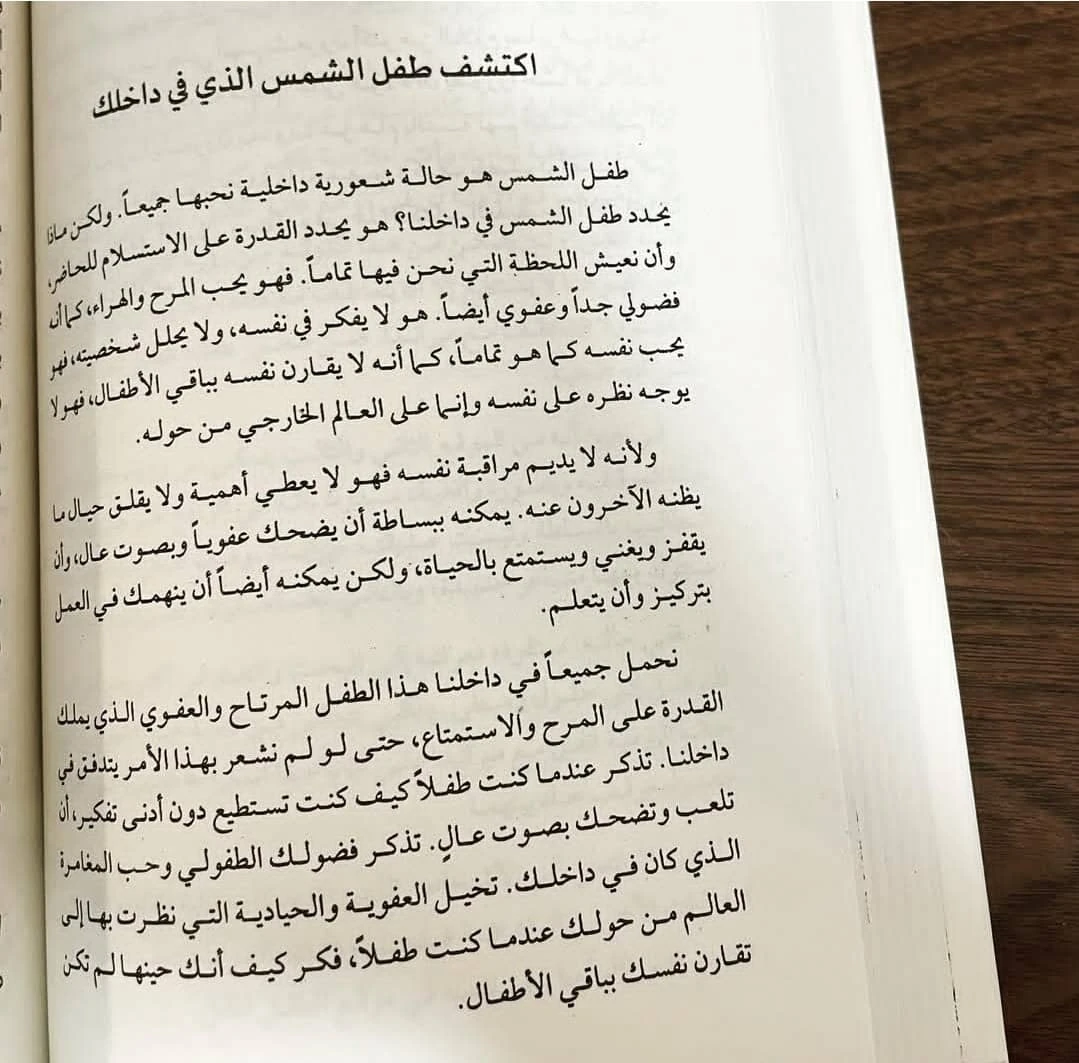 اكتشف طفل الشمس الذي في داخلك
طفل الشمس هو حالة شعورية داخلية نحبها جميعاً. ولكن ماذا
يحدد طفل الشمس في داخلنا؟ هو يحدد القدرة على الاستسلام للحاضر،
وأن نعيش اللحظة التي نحن فيها تماماً. فهو يحب المرح والهراء، كما أنه
فضولي جداً وعفوي أيضاً. هو لا يفكر في نفسه، ولا يحلل شخصيته، فهو
يحب نفسه كما هو تماماً، كما أنه لا يقارن نفسه بباقي الأطفال، فهو لا
يوجه نظره على نفسه وإنما على العالم الخارجي من حوله.
ولأنه لا يديم مراقبة نفسه فهو لا يعطي أهمية ولا يقلق حيال ما
يظنه الآخرون عنه. يمكنه ببساطة أن يضحك عفوياً وبصوت عال، وأن
يقفز ويغني ويستمتع بالحياة، ولكن يمكنه أيضاً أن ينهمك في العمل
بتركيز وأن يتعلم.
نحمل جميعاً في داخلنا هذا الطفل المرتاح والعفوي الذي يملك
القدرة على المرح والاستمتاع، حتى لو لم نشعر بهذا الأمر يتدفق في
داخلنا. تذكر عندما كنت طفلاً كيف كنت تستطيع دون أدنى تفكير، أن
تلعب وتضحك بصوت عالٍ. تذكر فضولك الطفولي وحب المغامرة
الذي كان في داخلك. تخيل العفوية والحيادية التي نظرت بها إلى
العالم من حولك عندما كنت طفلاً، فكر كيف أنك حينها لم تكن
تقارن نفسك بباقي الأطفال.